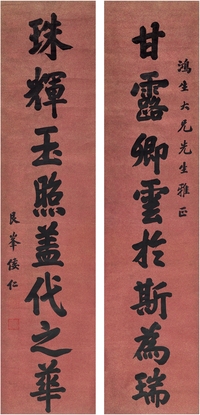 鴻生大兄先生雅正
甘露卿雲於斯為瑞
珠輝玉照蓋代之華
艮峯倭仁